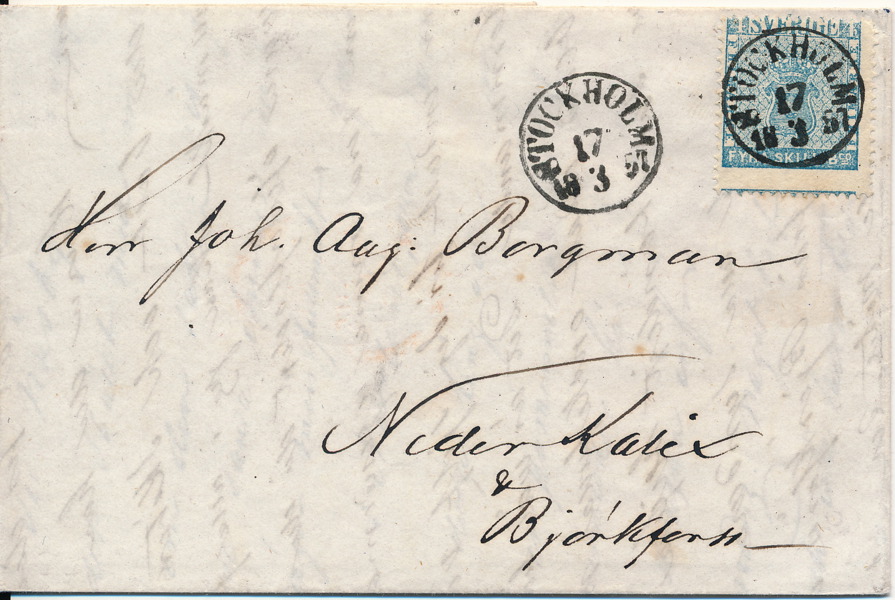 SVERIGE
STOCKHOLM
17
18 3 57
FYRA SKILL. BCO.
STOCKHOLM
17
18 3 57
Herr Joh. Aug. Borgman
Neder Kalix
&
Björkforss